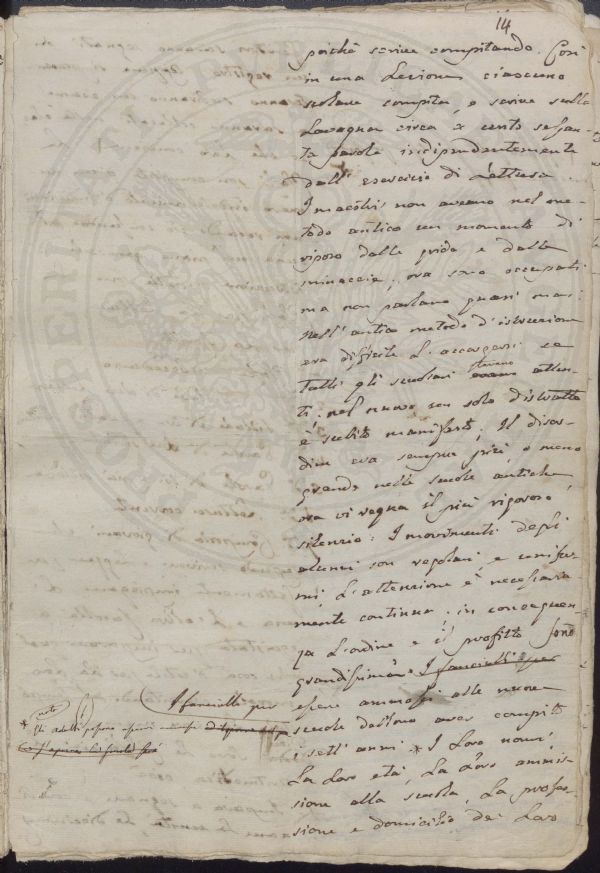 14
poichè scrive compitando. Così
in una Lezione ciascuno
scolare compita, o scrive sulla
Lavagna circa a cento sessan-
ta parole indipendentemente
dall' esercizio di Lettura.
I maestri non aveano nel me-
todo antico un momento di
riposo dalle grida e dalle
minaccie; ora sono occupati
ma non parlano quasi mai:
Nell' antico metodo d'istruzione
era difficile L'accorgersi se
tutti gli scolari stavano atten-
ti; nel nuovo un solo distratto
è subito manifesto. Il disor-
dine era sempre più, o meno
grande nelle scuole antiche
ora vi regna il più rigoroso
silenzio: I movimenti degli
alunni son regolari, e unifor-
mi, L'attenzione è necessaria-
mente continua; in conseguen-
za L'ordine e il profitto sono
grandissimi. I fanciulli per
I fanciulli per
essere ammessi alle nuove
scuole debbono aver compito
i sett' anni * I Loro nomi,
La Loro età, La Loro ammis-
sione alla scuola, La profes-
sione e domicilio de' Loro
note
* Gli adulti possono essere